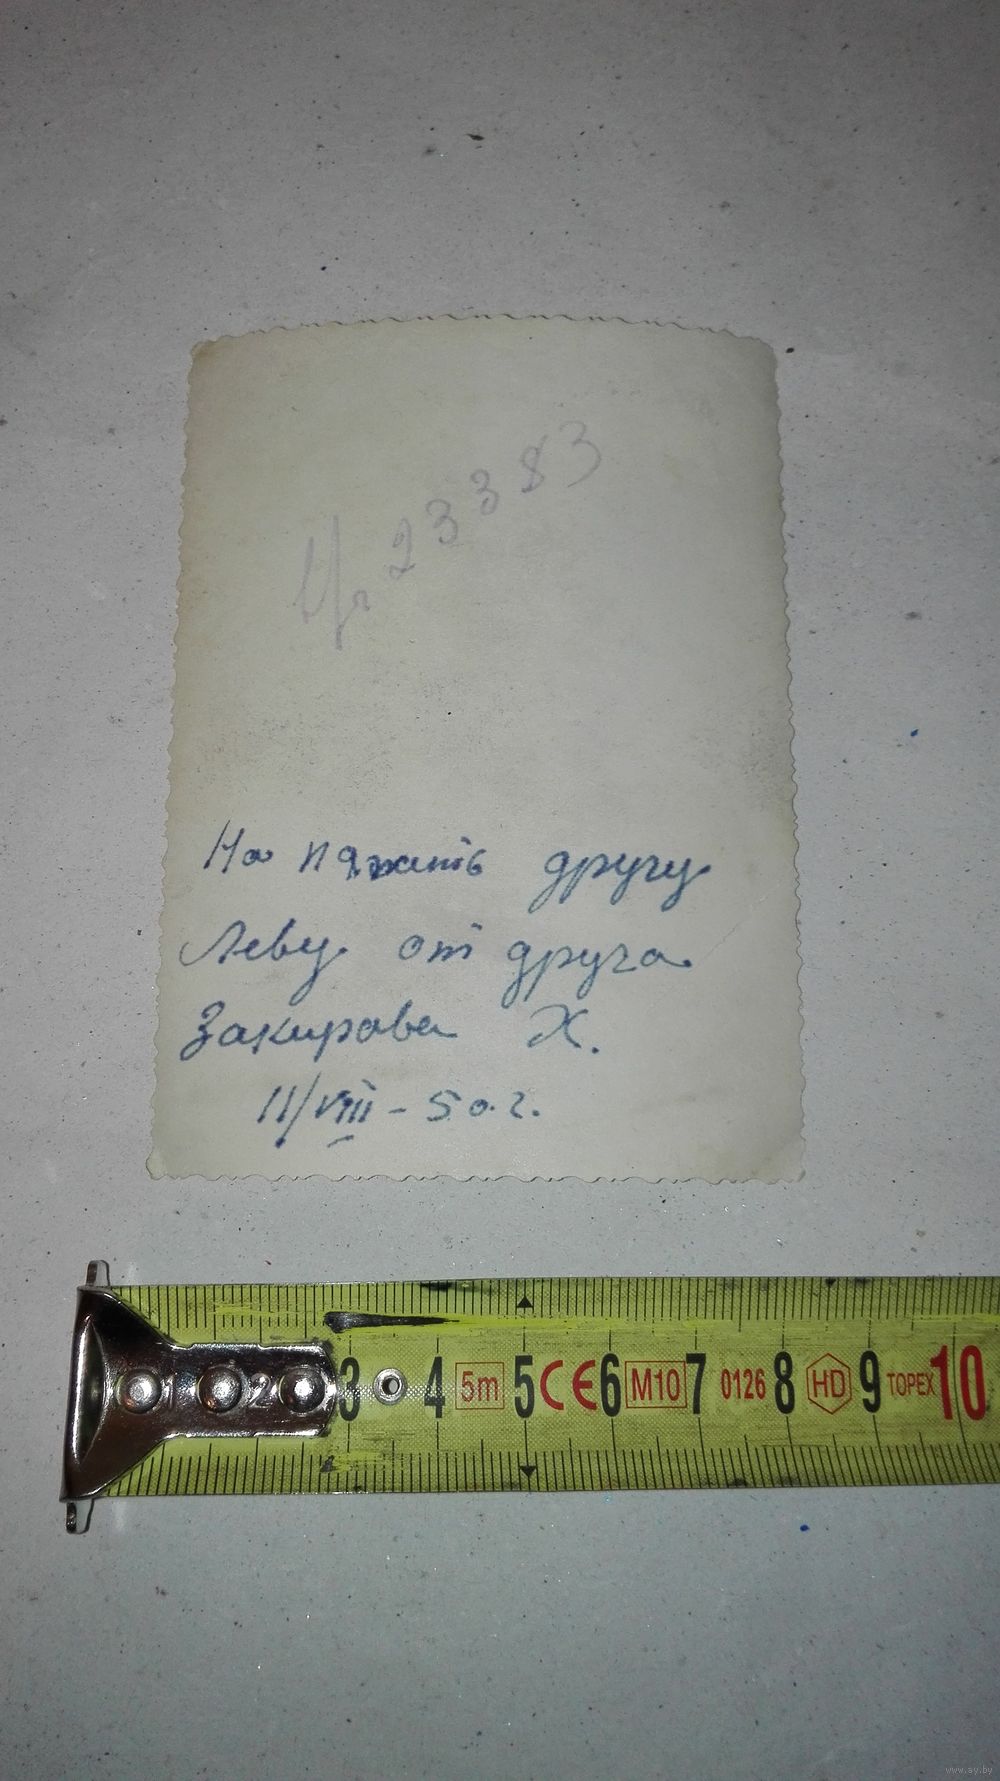 23383
На память другу
Леву от друга
Закирова Х.
11/VIII - 50.г.
1 2 3 4 5m 5 CE 6 M10 7 0126 8 HD 9 TOPEX 10
www.ay.by